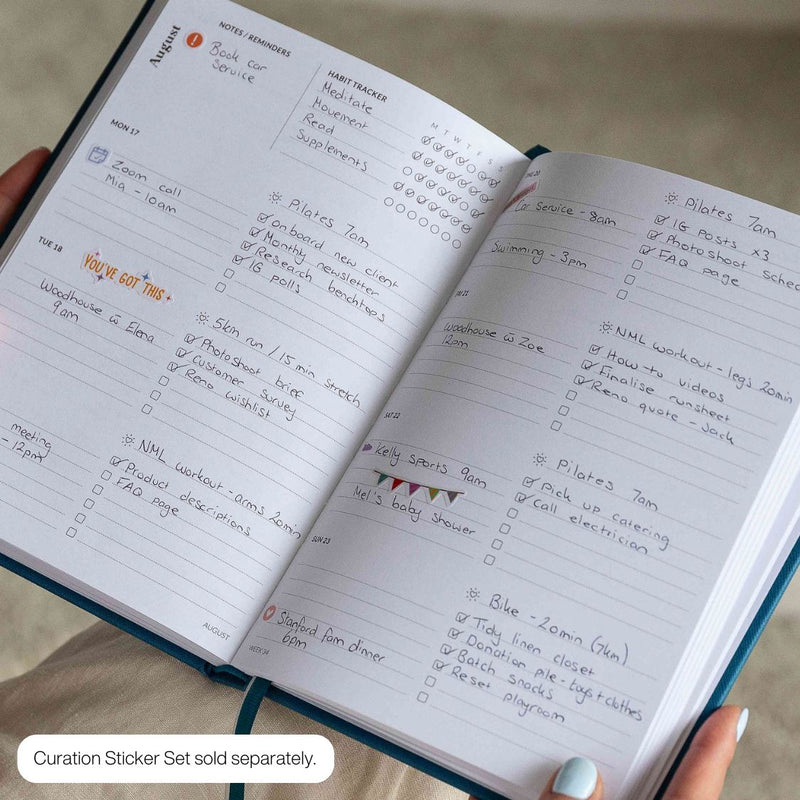 August
NOTES / REMINDERS
Book car
service
HABIT TRACKER
M T W T F S S
Meditate
Movement
Read
Supplements
MON 17
Zoom call
Mia - 10am
Pilates 7am
onboard new client
Monthy newsletter
Research benchtops
IG polls
TUE 18
YOU'VE GOT THIS
Woodhouse w̄ Elena
9am
5km run / 15 min stretch
Photoshoot brief
Customer survey
Reno wishlist
meeting
- 12pm
NML workout - arms 20min
Product descriptions
FAQ page
AUGUST
THU 20
Car service - 8am
Swimming - 3pm
Pilates 7am
IG posts x3
Photoshoot sched
FAQ page
FRI 21
Woodhouse w̄ Zoe
12pm
NML workout - legs 20min
How-to videos
Finalise runsheet
Reno quote - Jack
SAT 22
Kelly sports 9am
Mel's baby shower
Pilates 7am
Pick up catering
Call electrician
SUN 23
Stanford fam dinner
6pm
Bike - 20min (7km)
Tidy linen closet
Donation pile - toys + clothes
Batch snacks
Reset playroom
WEEK 34
Curation Sticker Set sold separately.